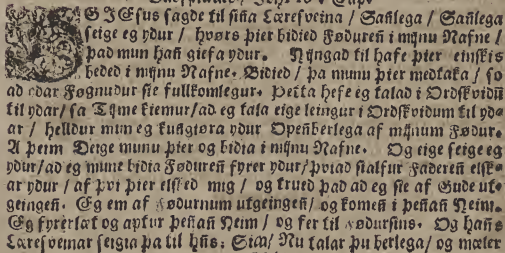 OG JEsus sagde til sina Læresveina / Sañlega / Sañlega
seige eg ydur / hvørs þier bidied Fødureñ i mijnu Nafne /
þad mun hañ giefa ydur. Hijngad til hafe þier einskis
beded i mijnu Nafne. Bidied / þa munu þier medtaka / so
ad ydar Føgnudur sie fullkomlegur. Þetta hefe eg talad i Ordskvidũ
til ydar / sa Tijme kiemur / ad eg tala eige leingur i Ordskvidum til yd-
ar / helldur mun eg kungiøra ydur Opeñberlega af mijnum Fødur.
A þeim Deige munu þier og bidia i mijnu Nafne. Og eige seige eg
ydur / ad eg mune bidia Fødureñ fyrer ydur / þviad sialfur Fadereñ elsk-
ar ydur / af þvi þier elsked mig / og trued þad ad eg sie af Gude ut-
geingeñ. Eg em af Fødurnum utgeingeñ / og komeñ i þeñañ Heim.
Eg fyrerlæt og aptur þeñañ Heim / og fer til Fødursins. Og hañs
Læresveinar seigia þa til hñs: Siaa / Nu talar þu berlega / og mæler